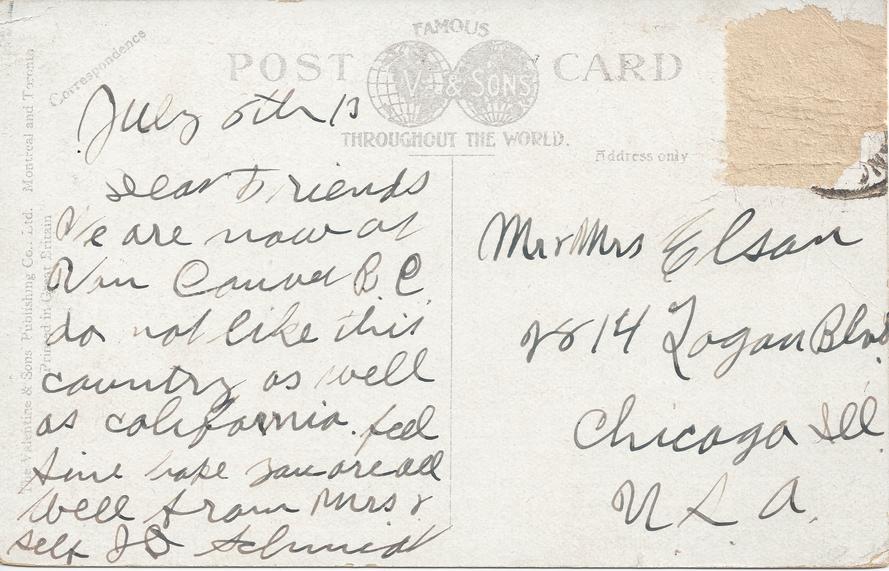 FAMOUS
POST CARD
V & SONS
THROUGHOUT THE WORLD.
Correspondence
Address only
The Valentine & Sons Publishing Co., Ltd. Montreal and Toronto
Printed in Great Britain
July 5th 13
Dear Friends
We are now at
Van Couver B C
do not like this
country as well
as california. feel
fine hope you are all
well from Mrs &
self J D Schmidt
Mr & Mrs Elson
2814 Logan Blvd
Chicago Ill
U S A.